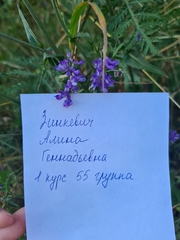 Зинкевич
Алина
Геннадьевна
1 курс 55 группа